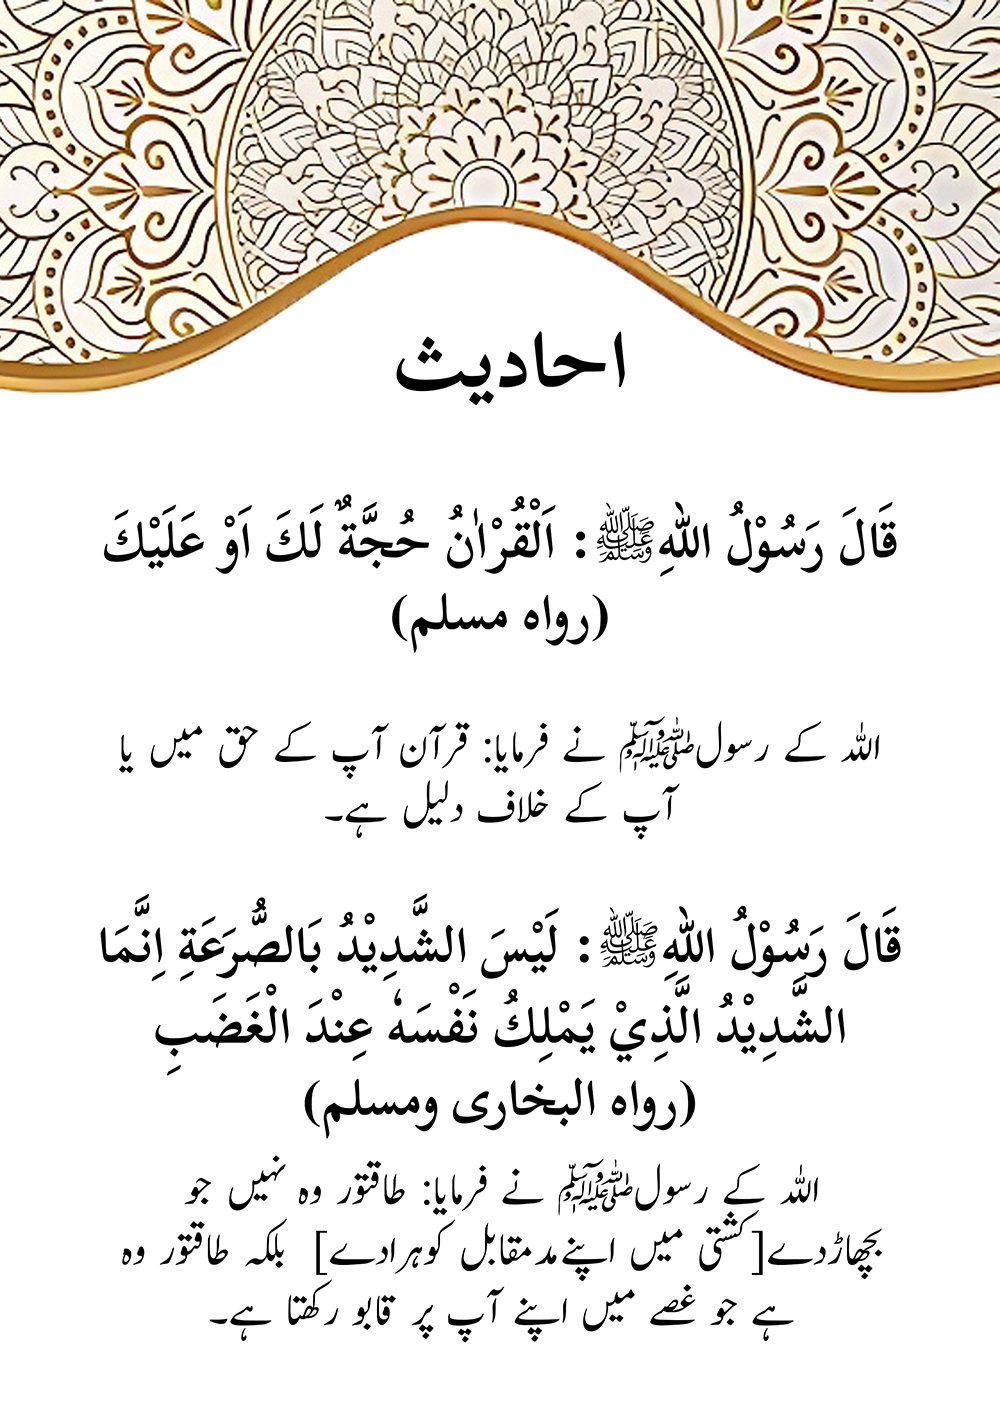 احادیث
قَالَ رَسُوْلُ اللهِ ﷺ : اَلْقُرْاٰنُ حُجَّةٌ لَكَ اَوْ عَلَيْكَ
(رواہ مسلم)
اللہ کے رسول ﷺ نے فرمایا: قرآن آپ کے حق میں یا
آپ کے خلاف دلیل ہے۔
قَالَ رَسُوْلُ اللهِ ﷺ : لَيْسَ الشَّدِيْدُ بَالصُّرَعَةِ اِنَّمَا
الشَّدِيْدُ الَّذِيْ يَمْلِكُ نَفْسَهٗ عِنْدَ الْغَضَبِ
(رواہ البخاری ومسلم)
اللہ کے رسول ﷺ نے فرمایا: طاقتور وہ نہیں جو
بچھاڑدے[کشتی میں اپنے مدمقابل کوہرادے] بلکہ طاقتور وہ
ہے جو غصے میں اپنے آپ پر قابو رکھتا ہے۔